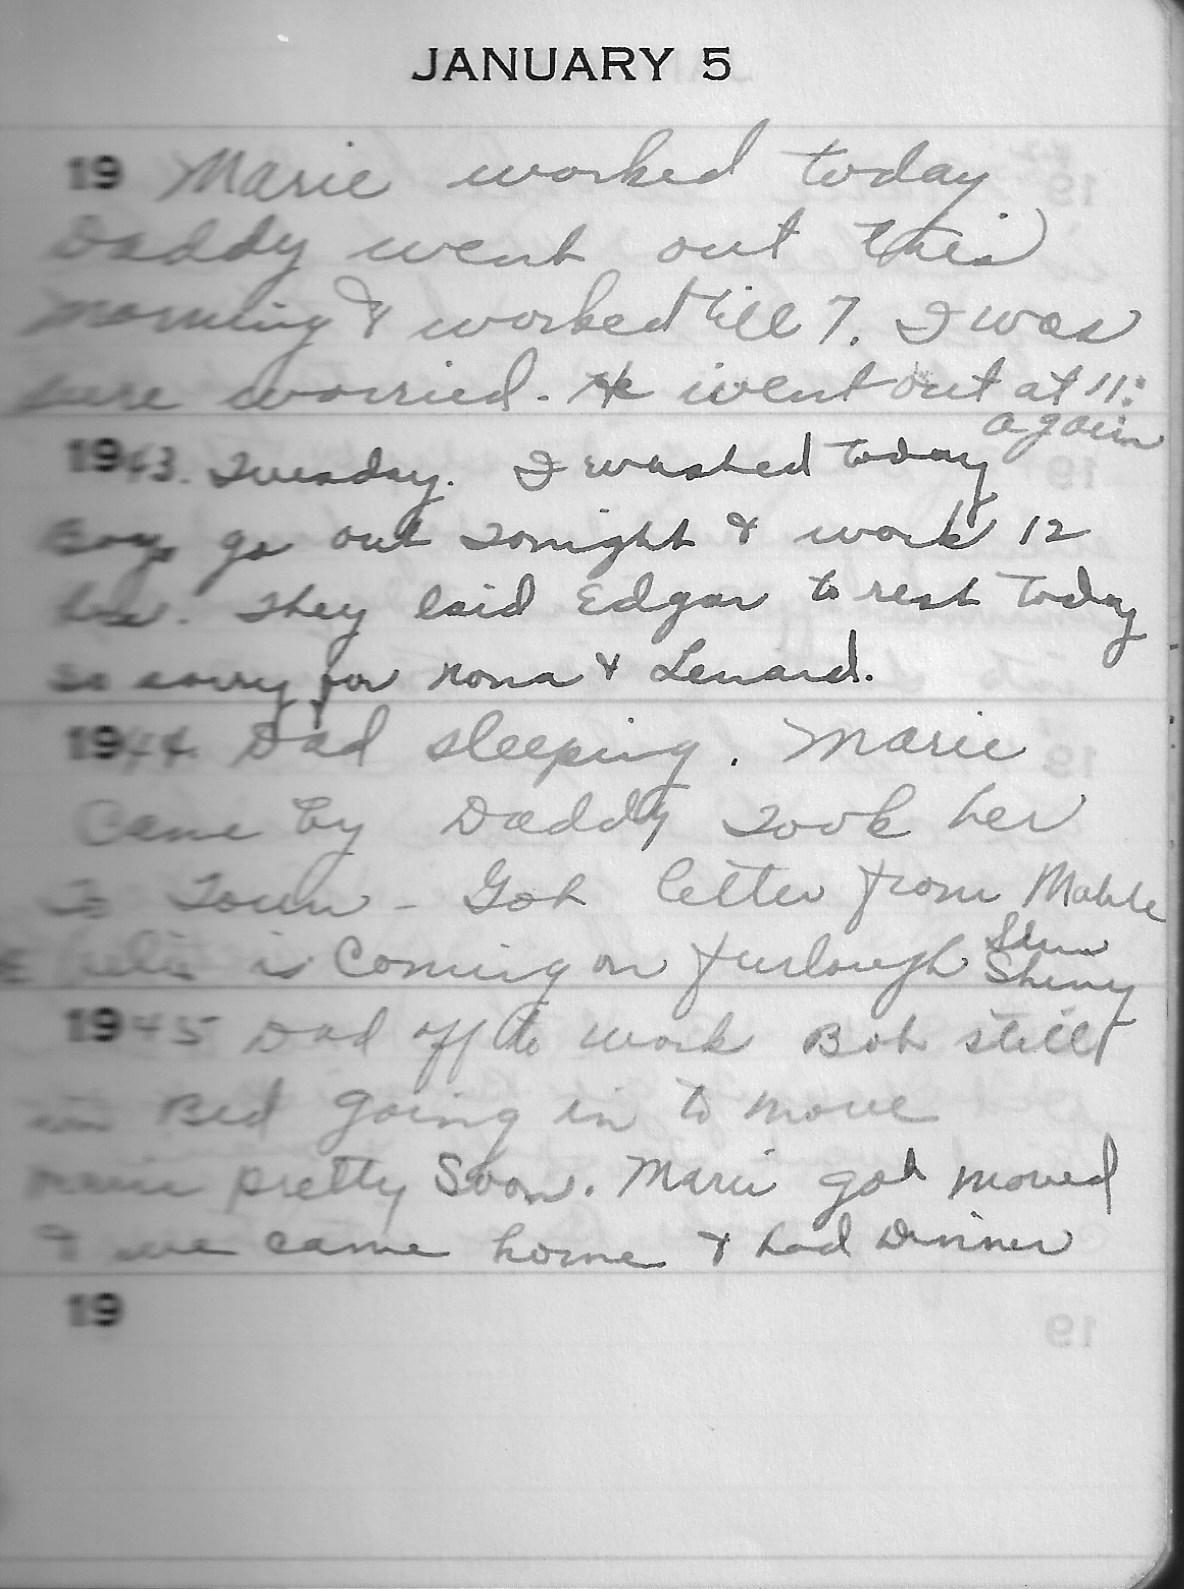 JANUARY 5
19 Marie worked today
Daddy went out this
morning & worked till 7. I was
sure worried. He went out at 11:
again
1943. Tuesday. I washed today
Boys go out Tonight & work 12
hrs. They laid Edgar to rest Today
So sorry for Nona & Lenard.
1944. Dad sleeping. Marie
Came by Daddy Took her
To Town - Got letter from Mable
is Coming on furlough
1945 Dad off to work Bob still
in Bed going in to move
Marie pretty Soon. Marie got moved
& we came home & had Dinner
19